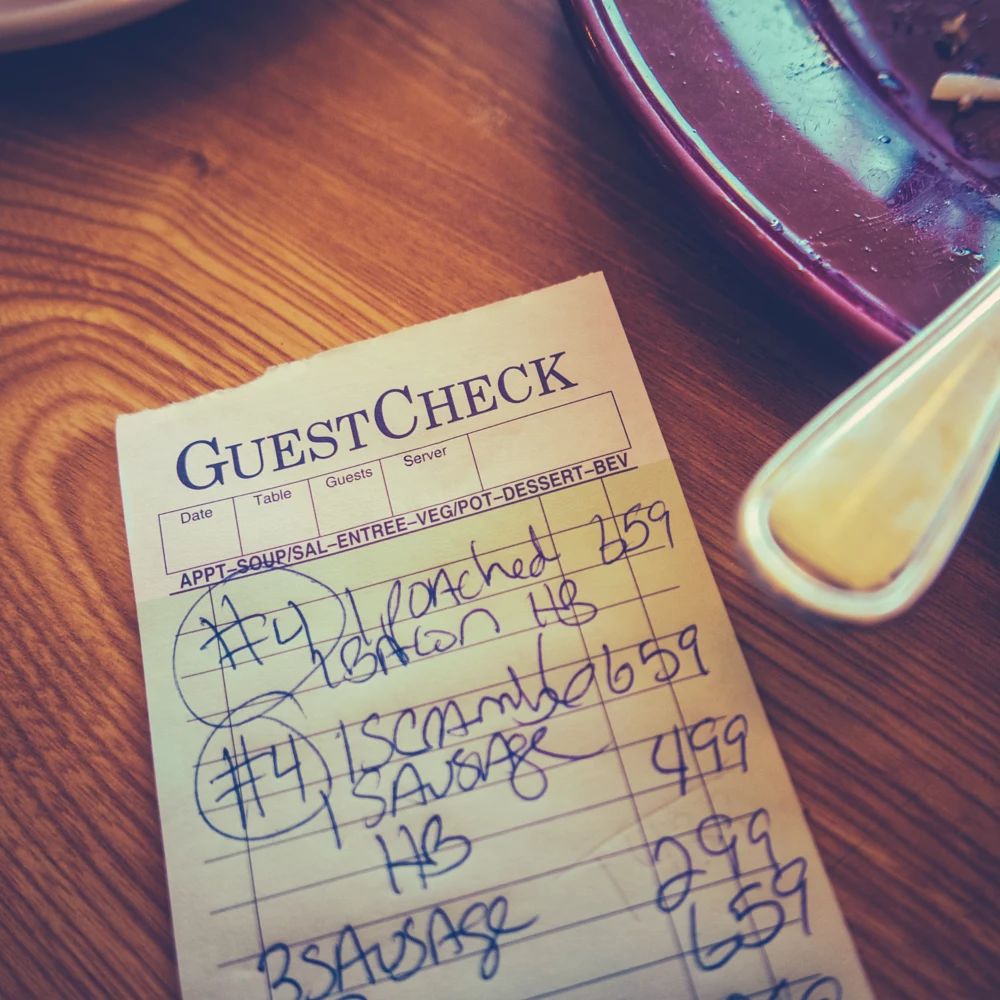 GUESTCHECK
Date Table Guests Server
APPT-SOUP/SAL-ENTREE-VEG/POT-DESSERT-BEV
#4 1 POAChed 659
2 BACON HB
#4 1 SCRAmbled 659
1 SAUSAge 499
HB
299
3 SAUSAge 659